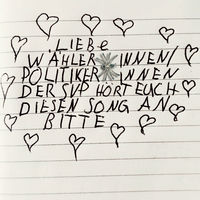 .LIEBe
WÄHLER*INNEN/
POLITIKER*INNEN
DER SVP HÖRT EUCH
DIESEN SONG AN
BITTE